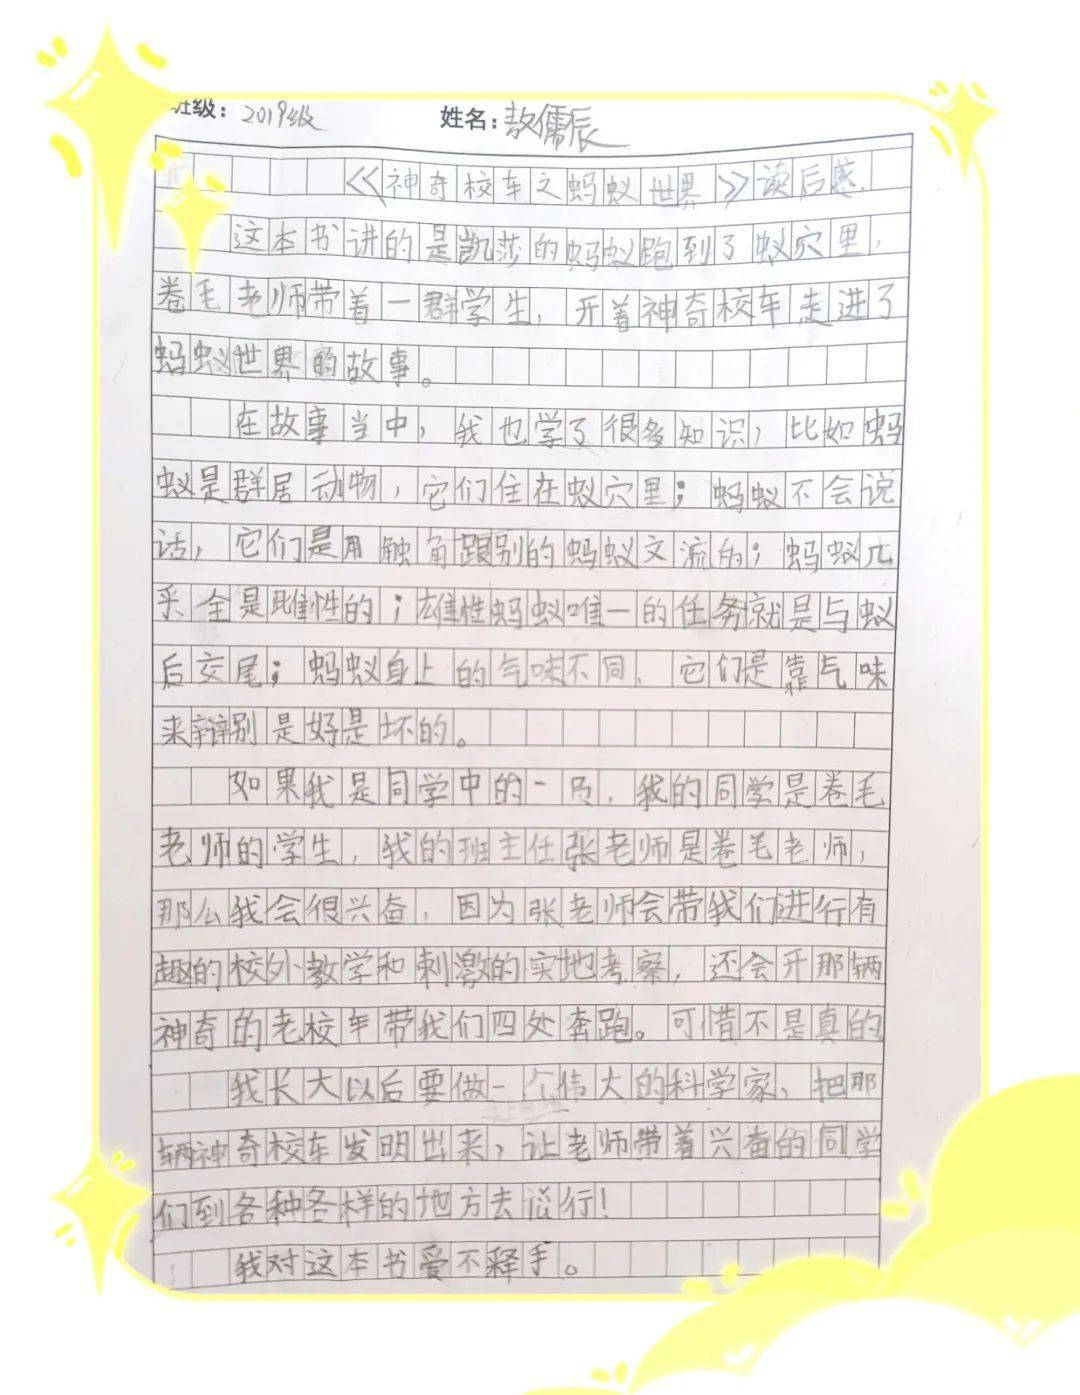 班级：2019级 姓名：敖儒辰
《神奇校车之蚂蚁世界》读后感
这本书讲的是凯莎的蚂蚁跑到了蚁穴里，
卷毛老师带着一群学生，开着神奇校车走进了
蚂蚁世界的故事。
在故事当中，我也学了很多知识，比如蚂
蚁是群居动物，它们住在蚁穴里；蚂蚁不会说
话，它们是用触角跟别的蚂蚁交流的；蚂蚁几
乎全是雌性的；雄性蚂蚁唯一的任务就是与蚁
后交尾；蚂蚁身上的气味不同，它们是靠气味
来辩别是好是坏的。
如果我是同学中的一员，我的同学是卷毛
老师的学生，我的班主任张老师是卷毛老师，
那么我会很兴奋，因为张老师会带我们进行有
趣的校外教学和刺激的实地考察，还会开那辆
神奇的老校车带我们四处奔跑。可惜不是真的
我长大以后要做一个伟大的科学家，把那
辆神奇校车发明出来，让老师带着兴奋的同学
们到各种各样的地方去行！
我对这本书爱不释手。